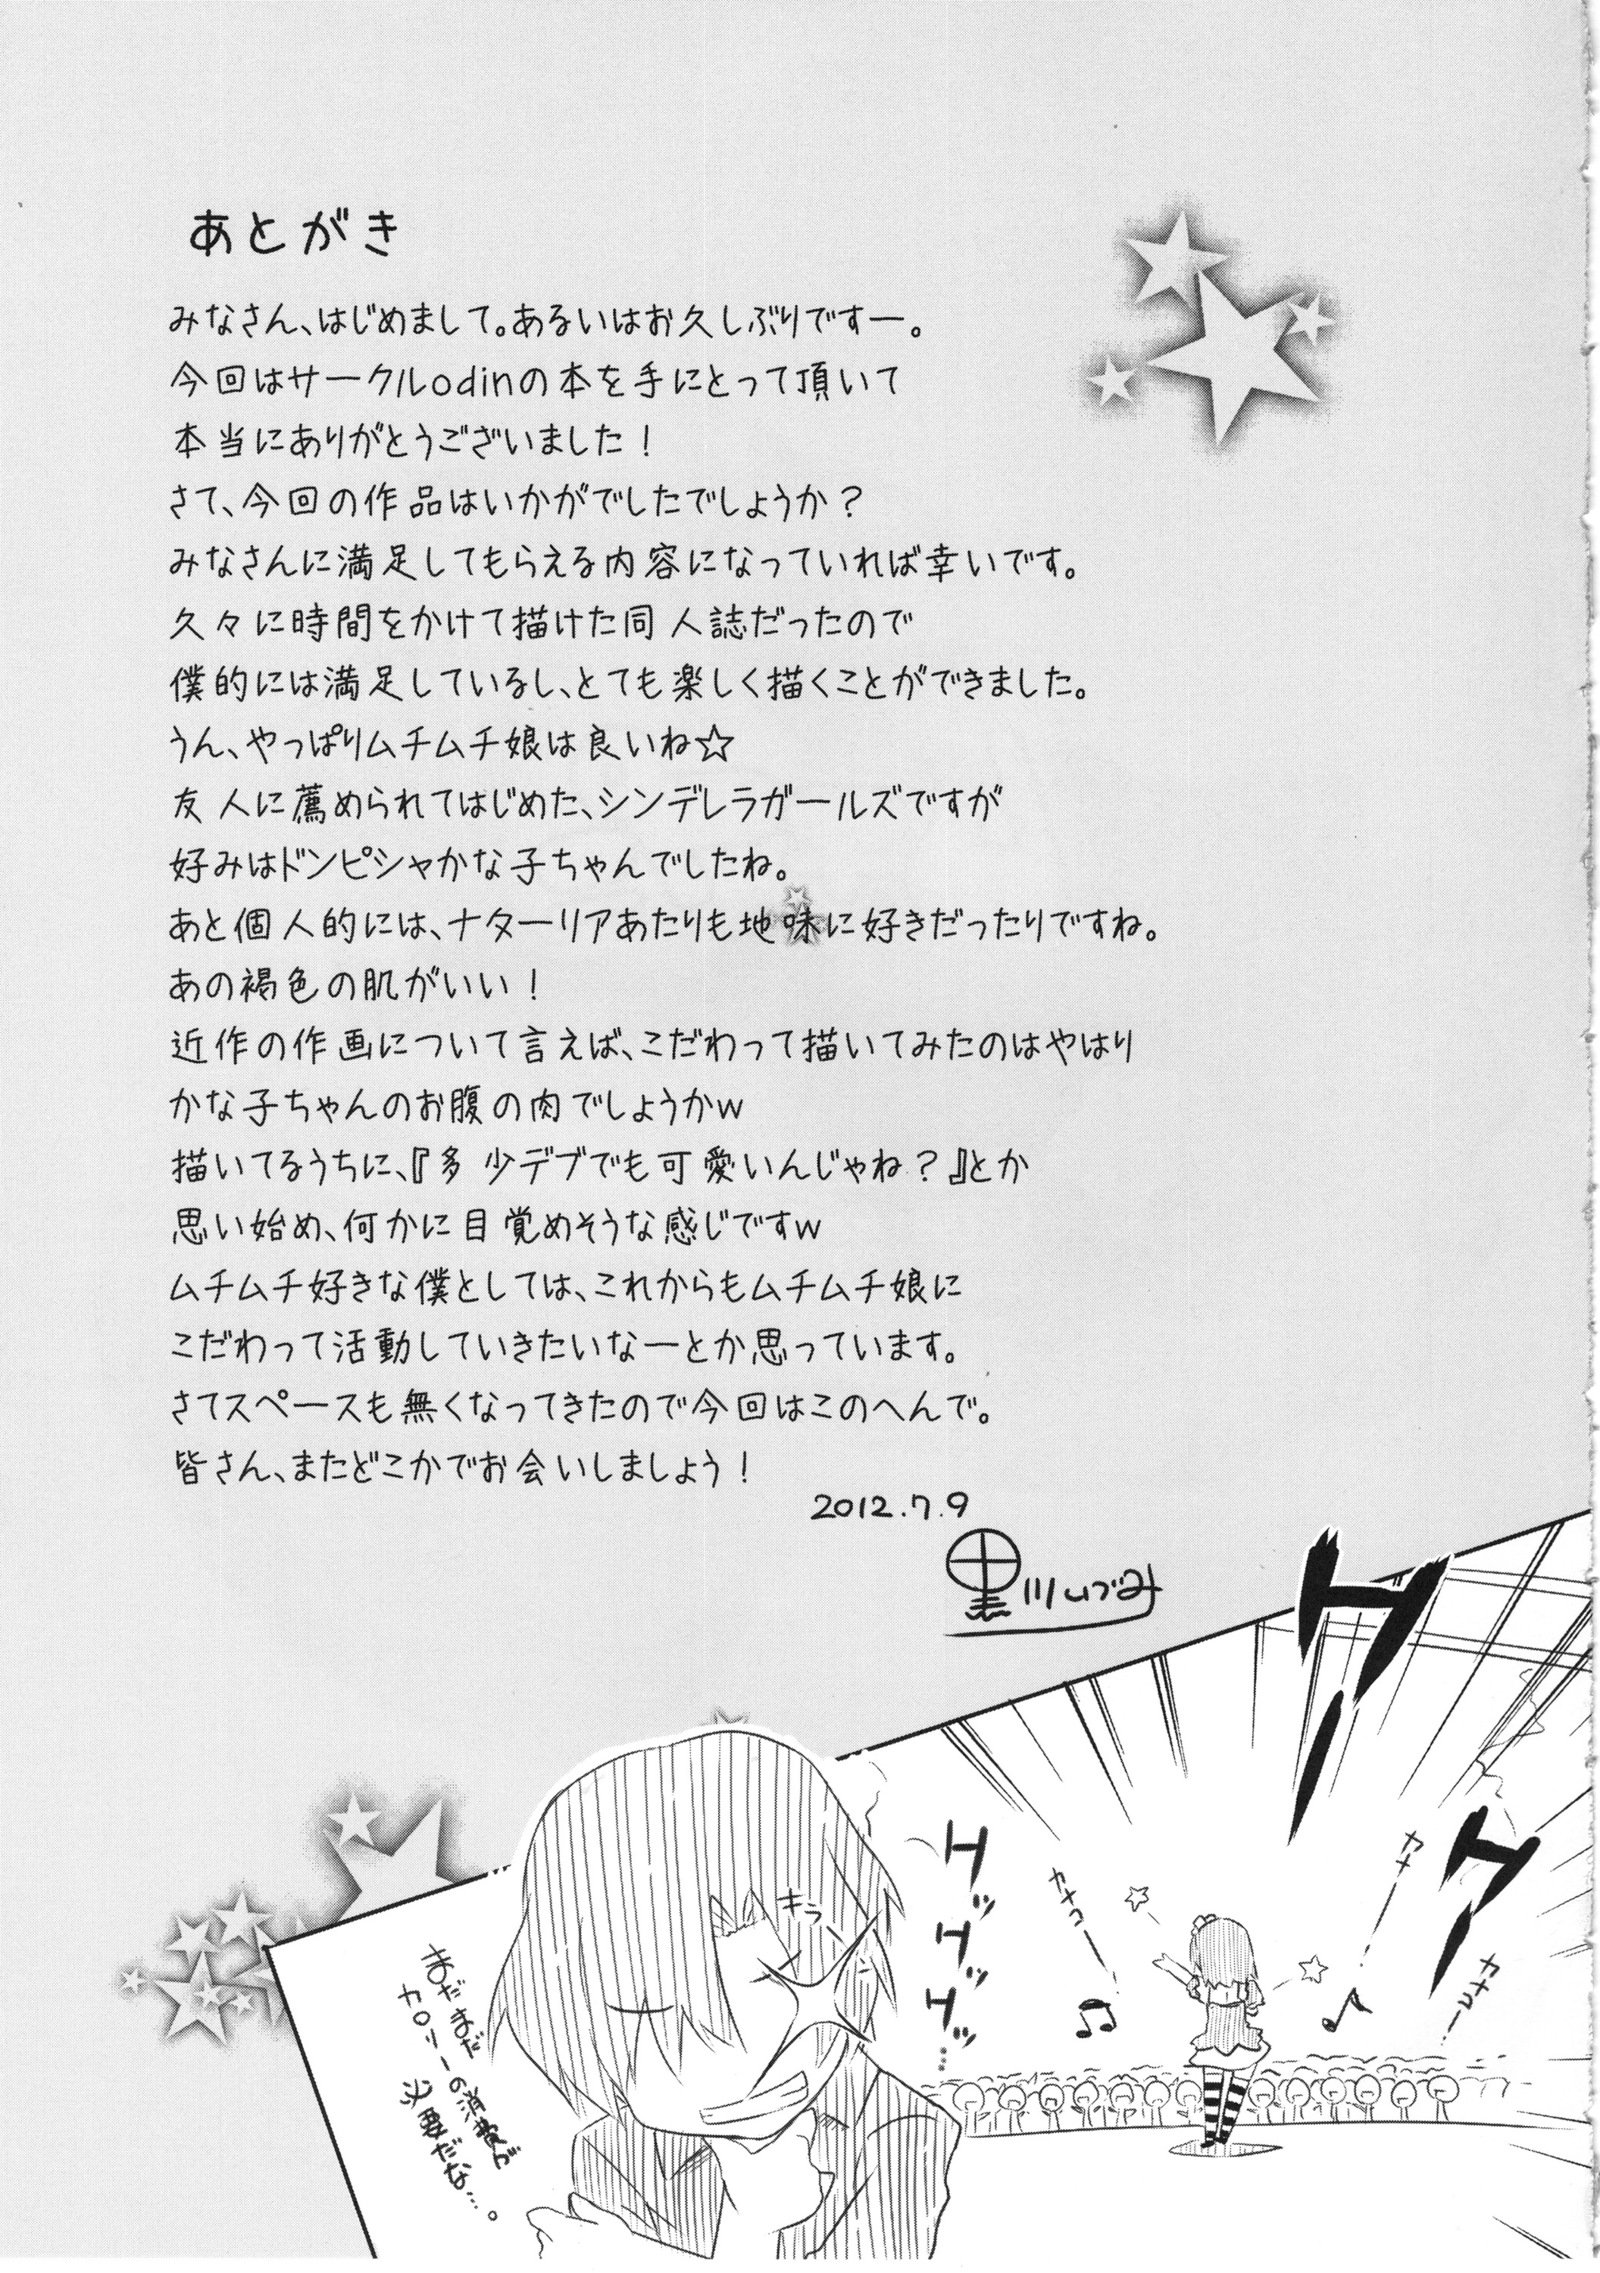 あとがき
みなさん、はじめまして。あるいはお久しぶりですー。
今回はサークルodinの本を手にとって頂いて
本当にありがとうございました！
さて、今回の作品はいかがでしたでしょうか？
みなさんに満足してもらえる内容になっていれば幸いです。
久々に時間をかけて描けた同人誌だったので
僕的には満足しているし、とても楽しく描くことができました。
うん、やっぱりムチムチ娘は良いね☆
友人に薦められてはじめた、シンデレラガールズですが
好みはドンピシャかな子ちゃんでしたね。
あと個人的には、ナターリアあたりも地味に好きだったりですね。
あの褐色の肌がいい！
近作の作画について言えば、こだわって描いてみたのはやはり
かな子ちゃんのお腹の肉でしょうかw
描いてるうちに、『多少デブでも可愛いんじゃね？』とか
思い始め、何かに目覚めそうな感じですw
ムチムチ好きな僕としては、これからもムチムチ娘に
こだわって活動していきたいなーとか思っています。
さてスペースも無くなってきたので今回はこのへんで。
皆さん、またどこかでお会いしましょう！
2012.7.9
黒川いづみ
カナコー
カナー
カナコー
キラン
まだまだ
カロリーの消費が
必要だな…。